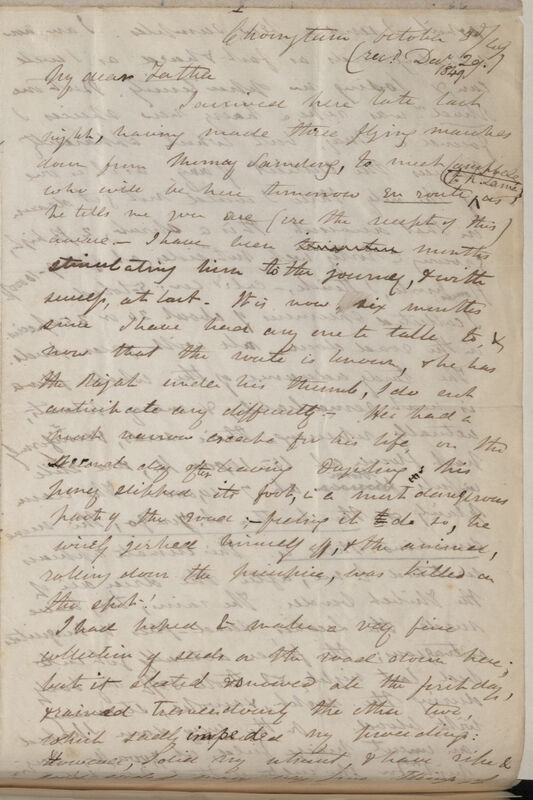 1
Choongtam October 3d/49
(recd. Decr. 29. 1849)
My dear Father
I arrived here late last
night, having made three flying marches
down from Momay Samdong, to meet Campbell
who will be here tomorrow en route, as
he tells me you are (ere the receipt of this)
aware – I have been months
stimulating him to the journey, & with
success, at last. It is now six months
since I have had any one to talk to, &
now that the route is known, & he has
the Rajah under his thumb, I do not
anticipate any difficulty – He had a
most narrow escape for his life on the
second day after leaving Dorjiling, his
poney slipped its foot, in a most dangerous
part of the road: – feeling it do so, he
wisely jerked himself off, & the animal,
rolling down the precipice, was killed on
the spot!
I had hoped to make a very fine
collection of seeds on the road down here;
but it sleeted & snowed all the first day,
& rained tremendously the other two,
which sadly impeded my proceedings:
however, I did my utmost, & have